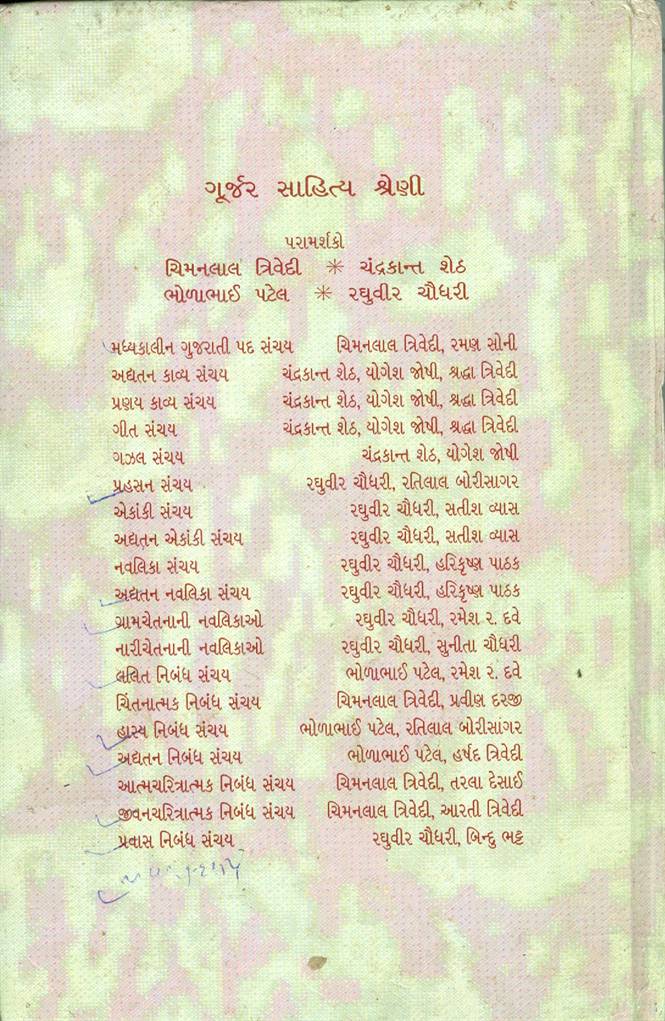 ગૂર્જર સાહિત્ય શ્રેણી
પરામર્શકો
ચિમનલાલ ત્રિવેદી ✳ ચંદ્રકાન્ત શેઠ
ભોળાભાઈ પટેલ ✳ રઘુવીર ચૌધરી
મધ્યકાલીન ગુજરાતી પદ સંચય ચિમનલાલ ત્રિવેદી, રમણ સોની
અદ્યતન કાવ્ય સંચય ચંદ્રકાન્ત શેઠ, યોગેશ જોષી, શ્રદ્ધા ત્રિવેદી
પ્રણય કાવ્ય સંચય ચંદ્રકાન્ત શેઠ, યોગેશ જોષી, શ્રદ્ધા ત્રિવેદી
ગીત સંચય ચંદ્રકાન્ત શેઠ, યોગેશ જોષી, શ્રદ્ધા ત્રિવેદી
ગઝલ સંચય ચંદ્રકાન્ત શેઠ, યોગેશ જોષી
પ્રહસન સંચય રઘુવીર ચૌધરી, રતિલાલ બોરીસાગર
એકાંકી સંચય રઘુવીર ચૌધરી, સતીશ વ્યાસ
અદ્યતન એકાંકી સંચય રઘુવીર ચૌધરી, સતીશ વ્યાસ
નવલિકા સંચય રઘુવીર ચૌધરી, હરિકૃષ્ણ પાઠક
અદ્યતન નવલિકા સંચય રઘુવીર ચૌધરી, હરિકૃષ્ણ પાઠક
ગ્રામચેતનાની નવલિકાઓ રઘુવીર ચૌધરી, રમેશ ર. દવે
નારીચેતનાની નવલિકાઓ રઘુવીર ચૌધરી, સુનીતા ચૌધરી
લલિત નિબંધ સંચય ભોળાભાઈ પટેલ, રમેશ ર. દવે
ચિંતનાત્મક નિબંધ સંચય ચિમનલાલ ત્રિવેદી, પ્રવીણ દરજી
હાસ્ય નિબંધ સંચય ભોળાભાઈ પટેલ, રતિલાલ બોરીસાંગર
અદ્યતન નિબંધ સંચય ભોળાભાઈ પટેલ, હર્ષદ ત્રિવેદી
આત્મચરિત્રાત્મક નિબંધ સંચય ચિમનલાલ ત્રિવેદી, તરલા દેસાઈ
જીવનચરિત્રાત્મક નિબંધ સંચય ચિમનલાલ ત્રિવેદી, આરતી ત્રિવેદી
પ્રવાસ નિબંધ સંચય રઘુવીર ચૌધરી, બિન્દુ ભટ્ટ